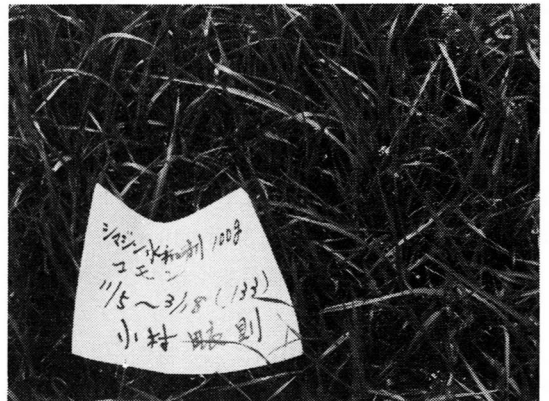 シマジン水和剤 100g
コエン
11/5 〜 3/18 (133)
小村 則